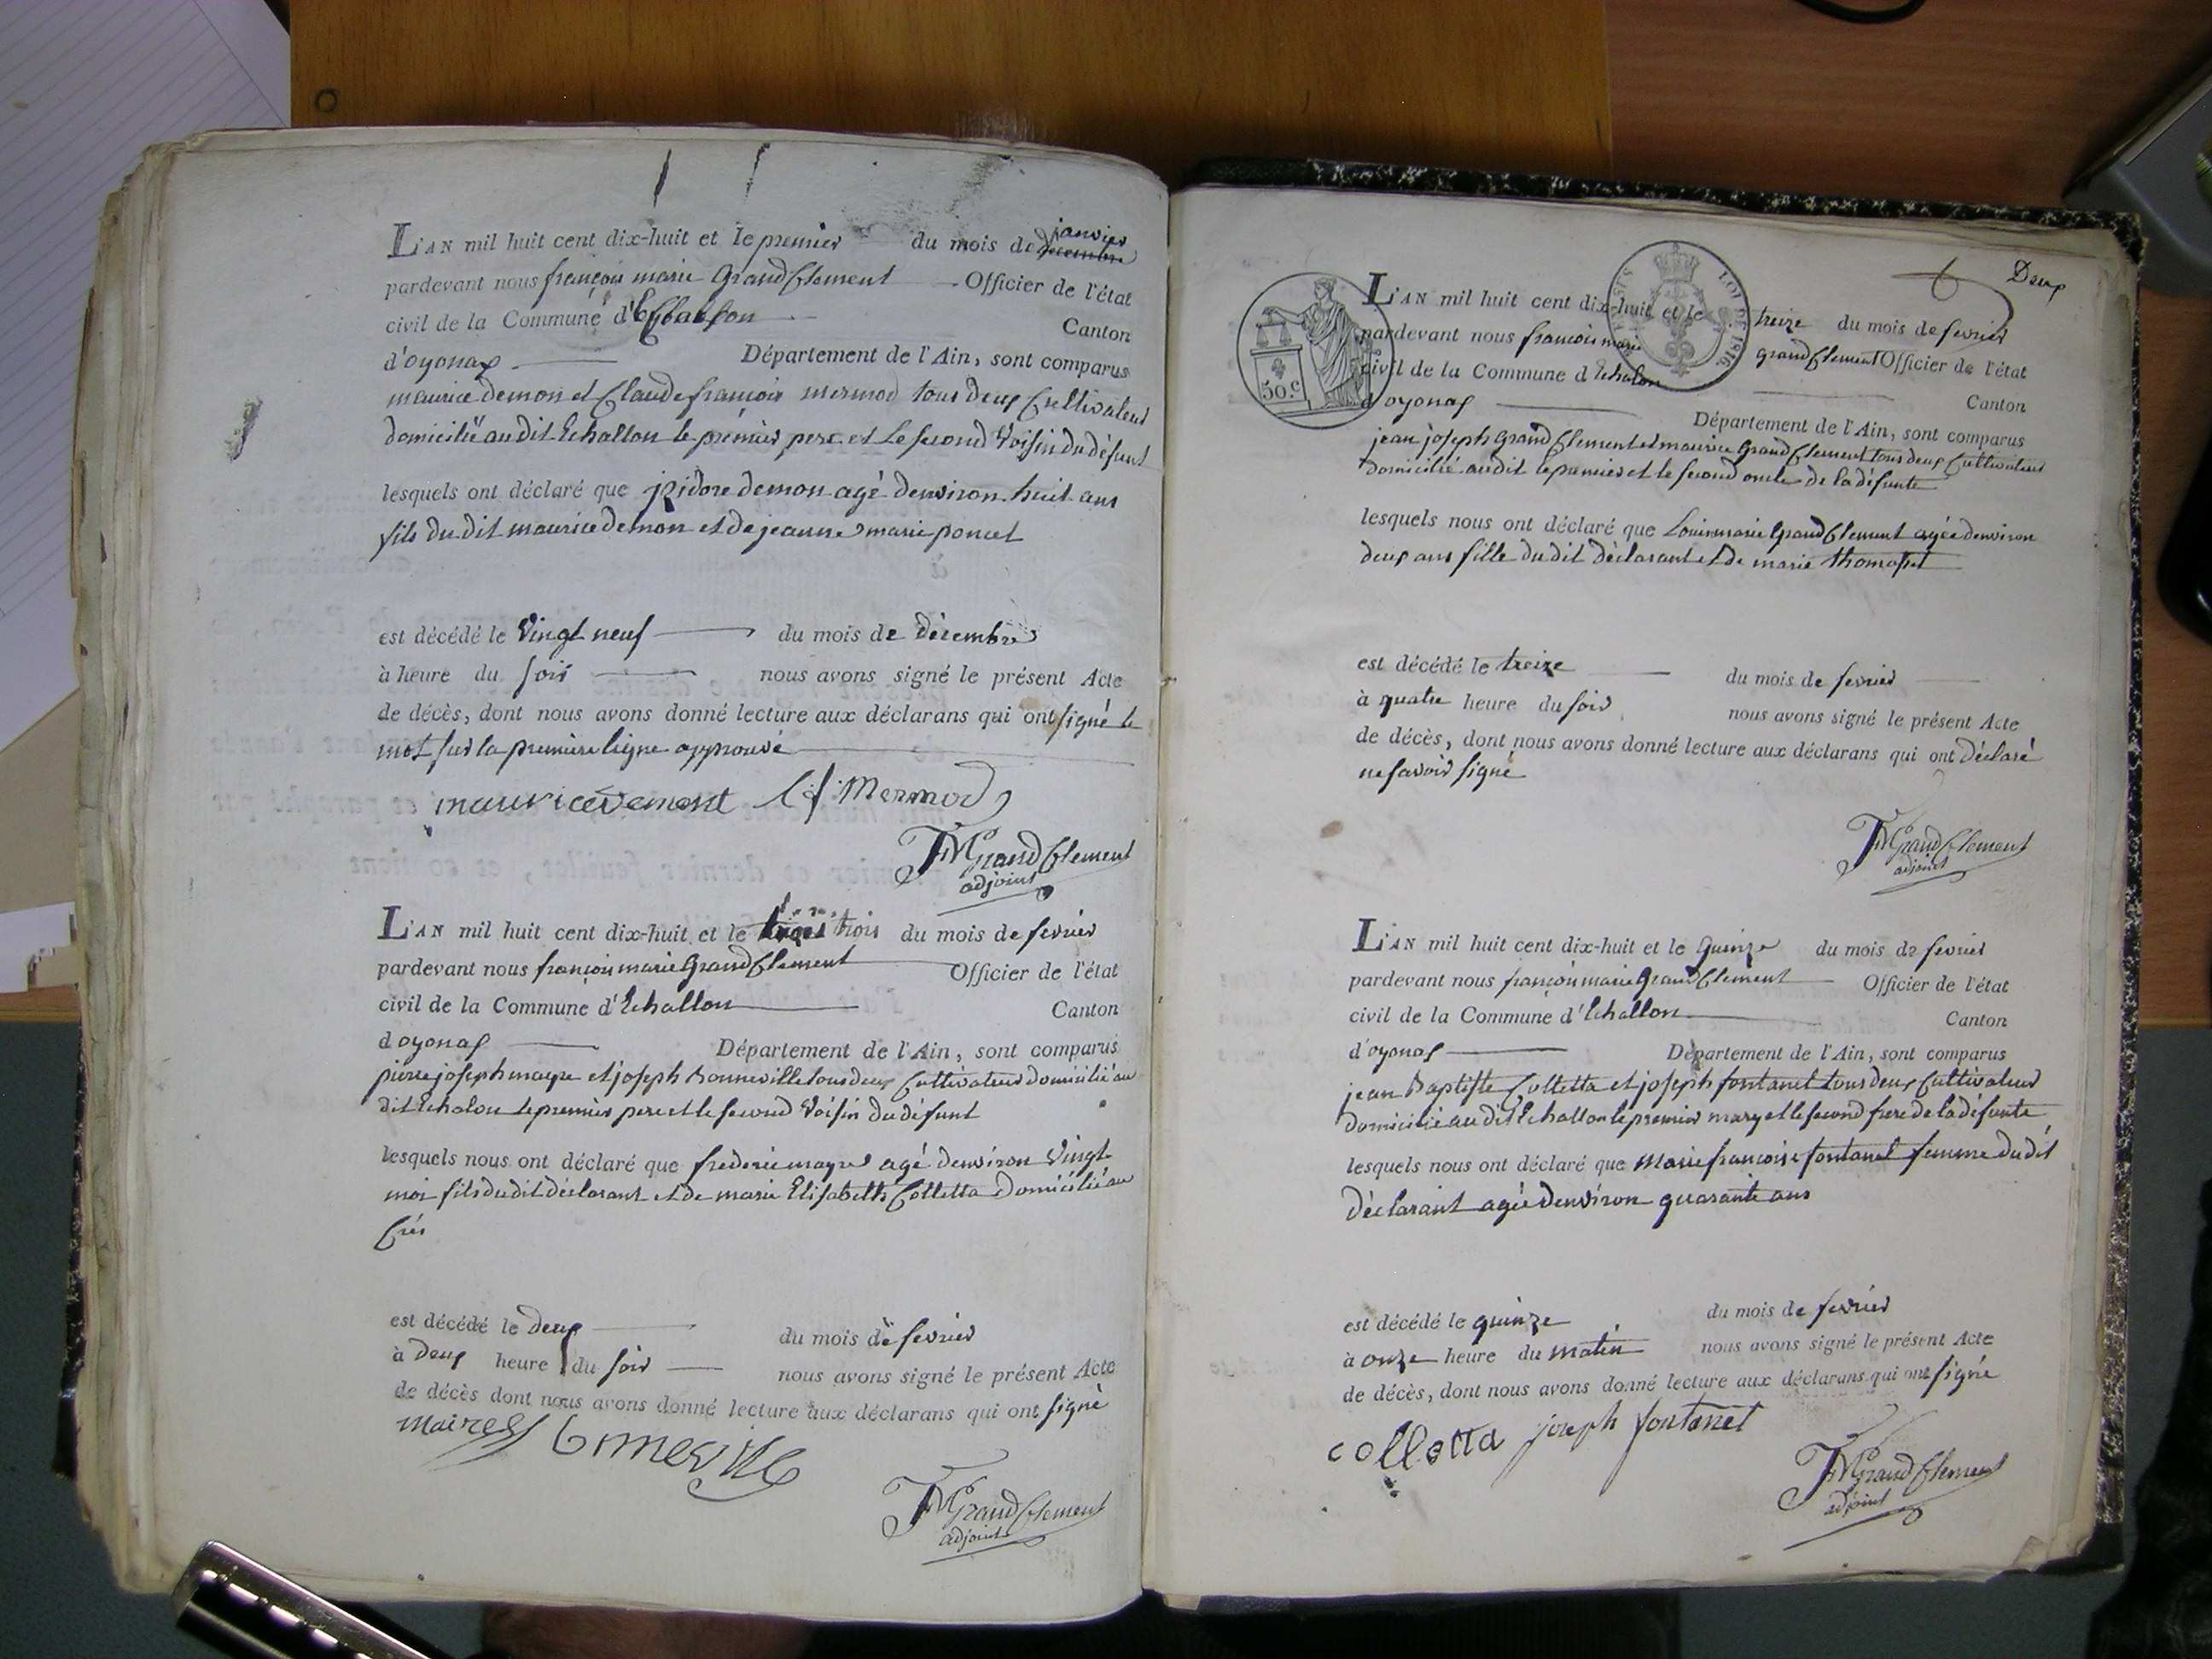 L'AN mil huit cent dix-huit et le premier du mois de decembre janvier
pardevant nous françois marie GrandClement Officier de l'état
civil de la Commune d'Echallon Canton
d'oyonax Département de l'Ain, sont comparus
maurice demon et Claude françois mermod tous deux Cultivateur
domicilié audit Echallon le premier pere et le second Voisin du défunt
lesquels ont déclaré que jsidore demon agé denviron huit ans
fils du dit maurice demon et de jeanne marie poncet
est décédé le Vingt neuf du mois de décembre
à heure du soir nous avons signé le présent Acte
de décès, dont nous avons donné lecture aux déclarans qui ont signé le
mot sur la premiere ligne approuvé
maurice demont Cf Mermod
FMGrandClement
adjoint
L'AN mil huit cent dix-huit et le trois du mois de fevrier
pardevant nous françois marie GrandClement Officier de l'état
civil de la Commune d'Echallon Canton
doyonax Département de l'Ain, sont comparus
pierre joseph mayre et joseph Bonneville tous deux Cultivateur domicilié au
dit Echalon le premier pere et le second Voisin du défunt
lesquels nous ont déclaré que frederic mayre agé denviron Vingt
mois fils du dit déclarant et de marie Elisabeth Colletta domicilié au
Crés
est décédé le deux du mois de fevrier
à deux heure du soir nous avons signé le présent Acte
de décès dont nous avons donné lecture aux déclarans qui ont signé
maire
FMGrandClement
adjoint
Deux
LOI DE 1816
50.c
L'AN mil huit cent dix-huit et le treize du mois de fevrier
pardevant nous francois marie grandClement Officier de l'état
civil de la Commune d Echalon Canton
d oyonax Département de l'Ain, sont comparus
jean joseph GrandClement et maurice GrandClement tous deux Cultivateur
domicilié audit le premier et le second oncle de la défunte
lesquels nous ont déclaré que Louise marie GrandClement agée denviron
deux ans fille du dit déclarant et de marie thomasset
est décédé le treize du mois de fevrier
à quatre heure du soir nous avons signé le présent Acte
de décès, dont nous avons donné lecture aux déclarans qui ont déclaré
ne savoir signé
FMGrandClement
adjoint
L'AN mil huit cent dix-huit et le Quinze du mois de fevrier
pardevant nous françois marie GrandClement Officier de l'état
civil de la Commune d'Echallon Canton
d'oyonax Département de l'Ain, sont comparus
jean Baptiste Colletta et joseph fontanet tous deux Cultivateur
domicilié au dit Echallon le premier mary et le second frere de la défunte
lesquels nous ont déclaré que Marie francoise fontanet femme du dit
déclarant agée denviron quarante ans
est décédé le quinze du mois de fevrier
à onze heure du matin nous avons signé le présent Acte
de décès, dont nous avons donné lecture aux déclarans qui ont signé
colletta joseph fontanet
FMGrandClement
adjoint